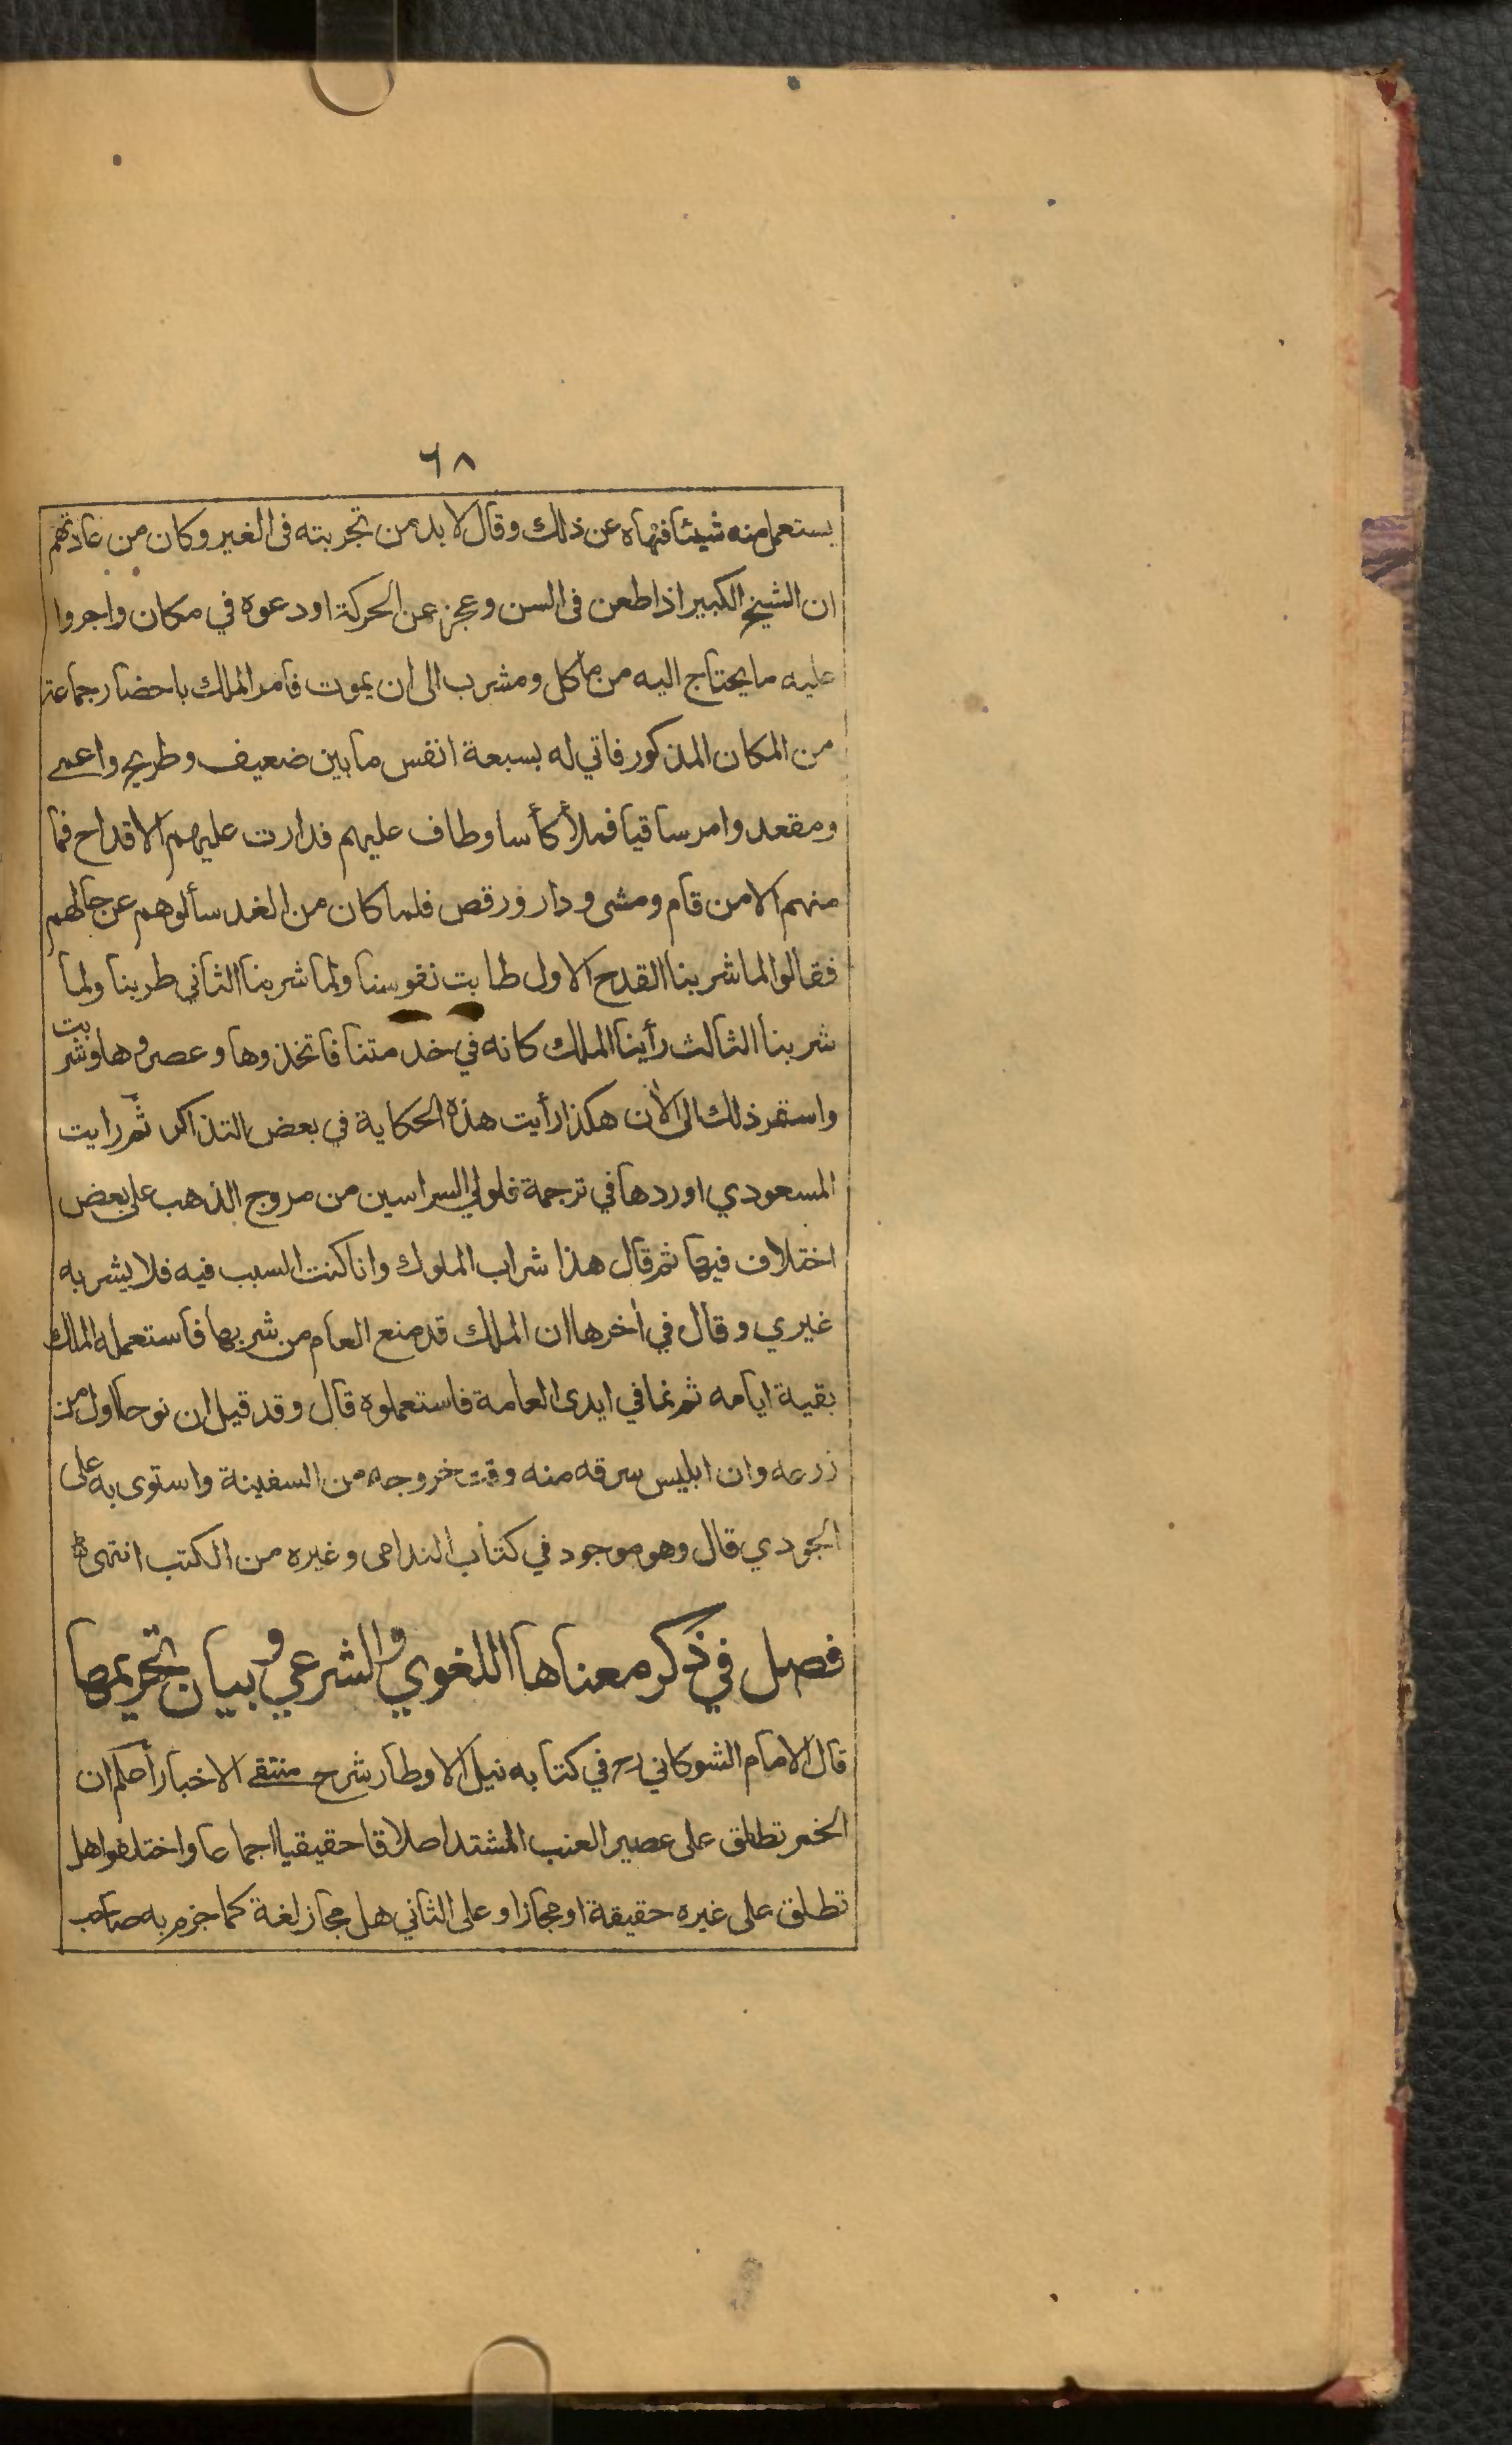 ٦٨
يستعمل منه شيئا فنهاه عن ذلك وقال لا بد من تجربته فى الغير وكان من عادتهم
ان الشيخ الكبير اذا طعن فى السن وعجز عن الحركة اودعوه في مكان واجروا
عليه ما يحتاج اليه من ماكل ومشرب الى ان يموت فامر الملك باحضار جماعة
من المكان المذكور فاتي له بسبعة انفس ما بين ضعيف وطريح واعمى
ومقعد وامر ساقيا فملأ كأسا وطاف عليهم فدارت عليهم الاقداح فما
منهم الا من قام ومشى ودار ورقص فلما كان من الغد سألوهم عن حالهم
فقالوا لما شربنا القدح الاول طابت نفوسنا ولما شربنا الثاني طربنا ولما
شربنا الثالث رأينا الملك كانه في خدمتنا فاتخذوها وعصروها وشربت
واستمر ذلك الى الأن هكذا رأيت هذه الحكاية في بعض التذاكر ثم رايت
المسعودي اوردها في ترجمة فلولي السراسين من مروج الذهب على بعض
اختلاف فيها ثم قال هذا شراب الملوك وانا كنت السبب فيه فلا يشربه
غيري وقال في أخرها ان الملك قد منع العام من شربها فاستعمله الملك
بقية ايامه ثم نما في ايدى العامة فاستعملوه قال وقد قيل ان نوحا اول من
زرعه وان ابليس سرقه منه وقت خروجه من السفينة واستوى به على
الجودي قال وهو موجود في كتاب الندامى وغيره من الكتب انتهى
فصل في ذكر معناها اللغوي والشرعي وبيان تحريمها
قال الامام الشوكاني رح في كتابه نيل الاوطار شرح منتقى الاخبار أعلم ان
الخمر تطلق على عصير العنب المشتد اطلاقا حقيقيا اجماعا واختلفوا هل
تطلق على غيره حقيقة او مجازا وعلى الثاني هل مجاز لغة كما جزم به صاحب